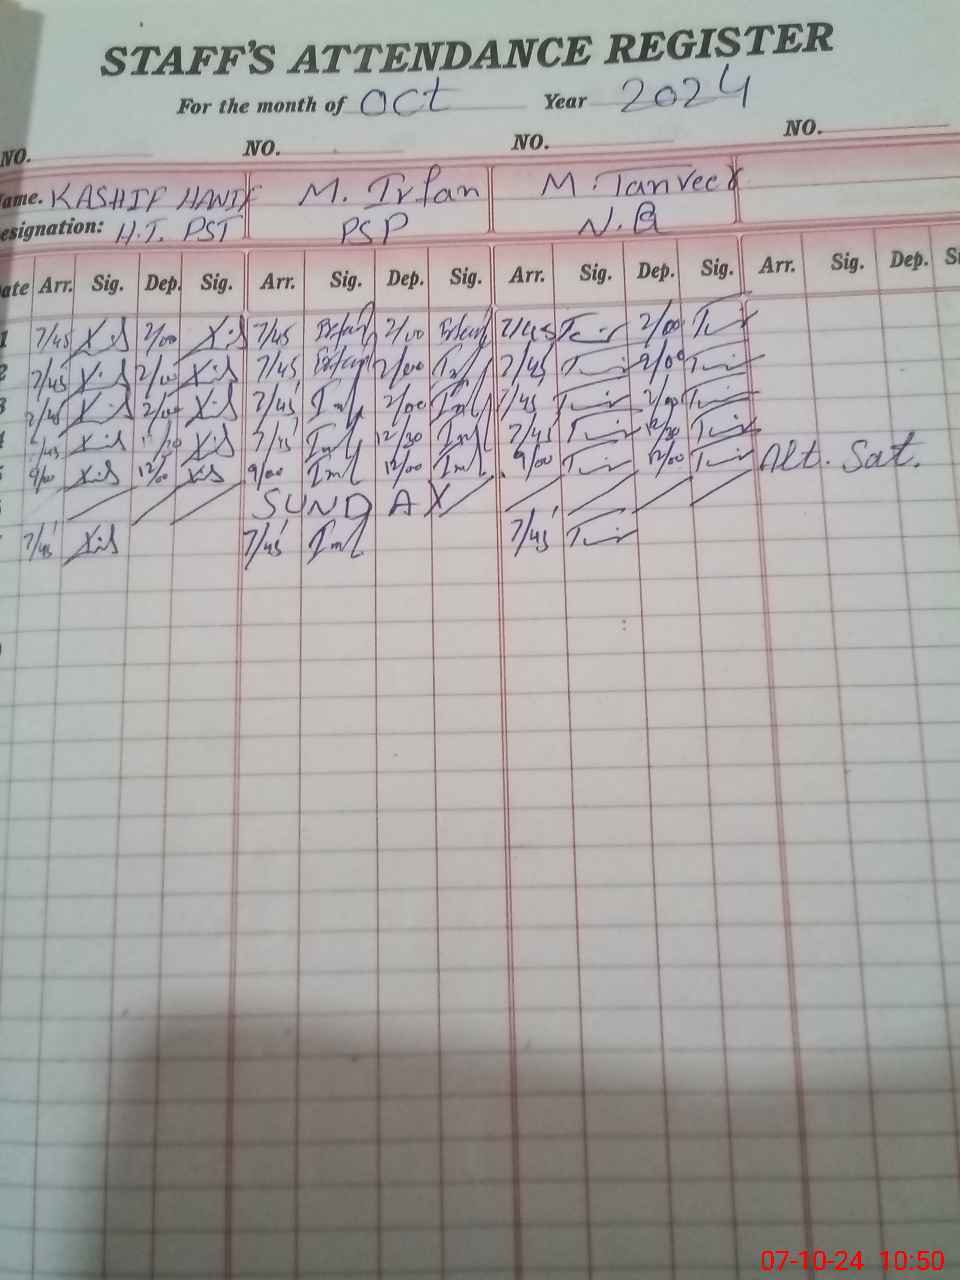 STAFF'S ATTENDANCE REGISTER
For the month of Oct Year 2024
NO. NO. NO. NO.
ame. KASHIF HANIF M. Irfan M. Tanveer
esignation: H.T. PST PSP N.Q
ate Arr. Sig. Dep. Sig. Arr. Sig. Dep. Sig. Arr. Sig. Dep. Sig. Arr. Sig. Dep. Si
1 7/45 2/00 7/45 Irfan 2/00 Irfan 7/45 2/00
2 7/45 2/00 7/45 Irfan 2/00 7/45 2/00
3 7/45 2/00 7/45 2/00 7/45 2/00
4 7/45 12/30 7/45 12/30 7/45 12/30
5 9/00 12/00 9/00 12/00 9/00 12/00 Alt. Sat.
SUNDAY
7/45 7/45 7/45
07-10-24 10:50